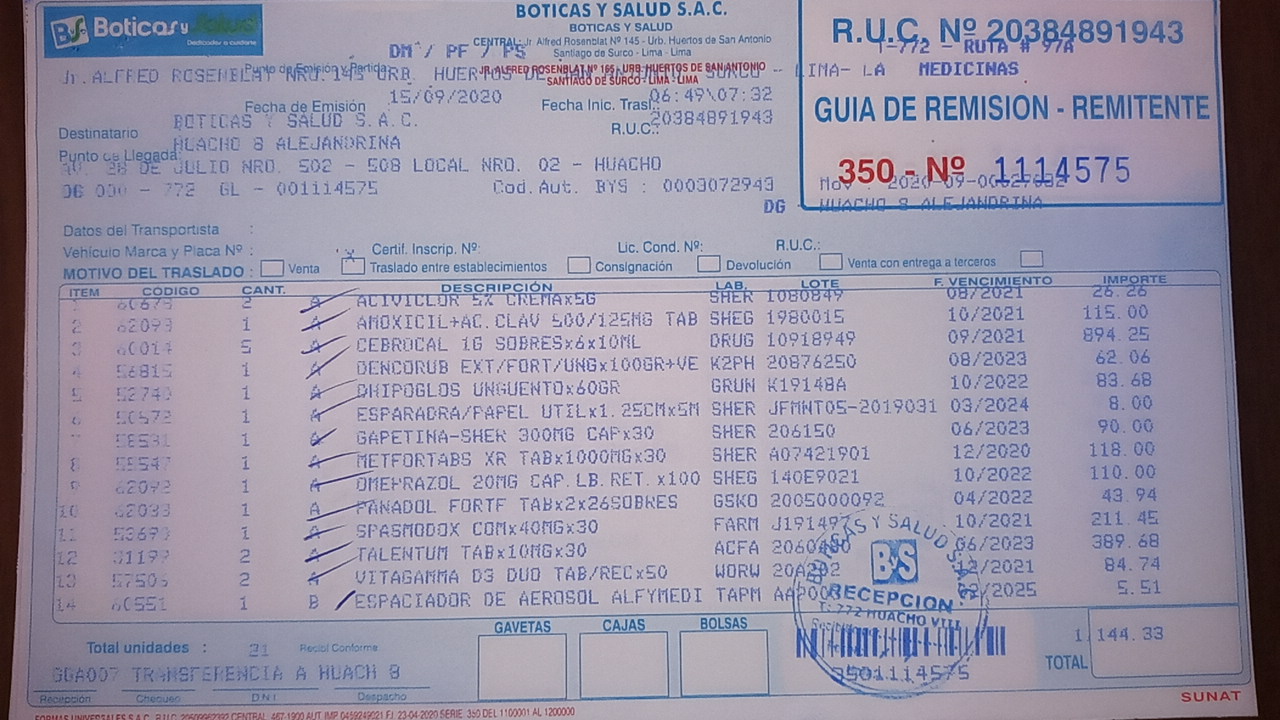 BS Boticas y Salud
Dedicados a cuidarte
BOTICAS Y SALUD S.A.C.
BOTICAS Y SALUD
CENTRAL: Jr. Alfred Rosenblat Nº 145 - Urb. Huertos de San Antonio
Santiago de Surco - Lima - Lima
DM / PF / PS
Punto de Emisión y Partida:
JR. ALFRED ROSENBLAT Nº 165 - URB. HUERTOS DE SAN ANTONIO
SANTIAGO DE SURCO - LIMA - LIMA
Jr. ALFRED ROSENBLAT NRO. 145 URB. HUERTOS DE SAN ANTONIO SURCO - LIMA- LA
R.U.C. Nº 20384891943
T-772 - RUTA # 97A
MEDICINAS
GUIA DE REMISION - REMITENTE
350 - Nº 1114575
Fecha de Emisión 15/09/2020 Fecha Inic. Trasl.: 06:49\07:32
BOTICAS Y SALUD S.A.C. R.U.C.: 20384891943
Destinatario HUACHO 8 ALEJANDRINA
Punto de Llegada:
AV. 28 DE JULIO NRO. 502 - 508 LOCAL NRO. 02 - HUACHO
772 GL - 001114575 Cod.Aut. BYS : 0003072943
DG - HUACHO 8 ALEJANDRINA
Datos del Transportista :
Vehículo Marca y Placa Nº : Certif. Inscrip. Nº: Lic. Cond. Nº: R.U.C.:
MOTIVO DEL TRASLADO : Venta X Traslado entre establecimientos Consignación Devolución Venta con entrega a terceros
ITEM CÓDIGO CANT. DESCRIPCIÓN LAB. LOTE F. VENCIMIENTO IMPORTE
1 60679 2 A ACIVICLOR 5% CREMAx5G SHER 1080849 08/2021 26.26
2 62093 1 A AMOXICIL+AC.CLAV 500/125MG TAB SHEG 1980015 10/2021 115.00
3 60014 5 A CEBROCAL 1G SOBRESx6x10ML DRUG 10918949 09/2021 894.25
4 56815 1 A DENCORUB EXT/FORT/UNGx100GR+VE K2PH 20876250 08/2023 62.06
5 52740 1 A DHIPOGLOS UNGUENTOx60GR GRUN K19148A 10/2022 83.68
6 50572 1 A ESPARADRA/PAPEL UTILx1.25CMx5M SHER JFMNT05-2019031 03/2024 8.00
7 58531 1 A GAPETINA-SHER 300MG CAPx30 SHER 206150 06/2023 90.00
8 59547 1 A METFORTABS XR TABx1000MGx30 SHER A07421901 12/2020 118.00
9 62092 1 A OMEPRAZOL 20MG CAP.LB.RET.x100 SHEG 140E9021 10/2022 110.00
10 62033 1 A PANADOL FORTE TABx2x26SOBRES GSKO 2005000092 04/2022 43.94
11 53690 1 A SPASMODOX COMx40MGx30 FARM J191497 10/2021 211.45
12 31199 2 A TALENTUM TABx10MGx30 ACFA 06/2023 389.68
13 57506 2 A VITAGAMMA D3 DUO TAB/RECx50 WORW 20A202 12/2021 84.74
14 60551 1 B ESPACIADOR DE AEROSOL ALFYMEDI TAPM 02/2025 5.51
BOTICAS Y SALUD S.A.C.
B&S
RECEPCION
T. 772 HUACHO VIII
GAVETAS CAJAS BOLSAS
Total unidades : 21 Recibí Conforme
TOTAL 1,144.33
GGA007 TRANSFERENCIA A HUACH 8
3501114575
Recepción Chequeo D.N.I. Despacho
SUNAT
FORMAS UNIVERSALES S.A.C. CENTRAL: 467-1900 AUT. IMP. 0459249021 F.I. 23-04-2020 SERIE: 350 DEL 1100001 AL 1200000